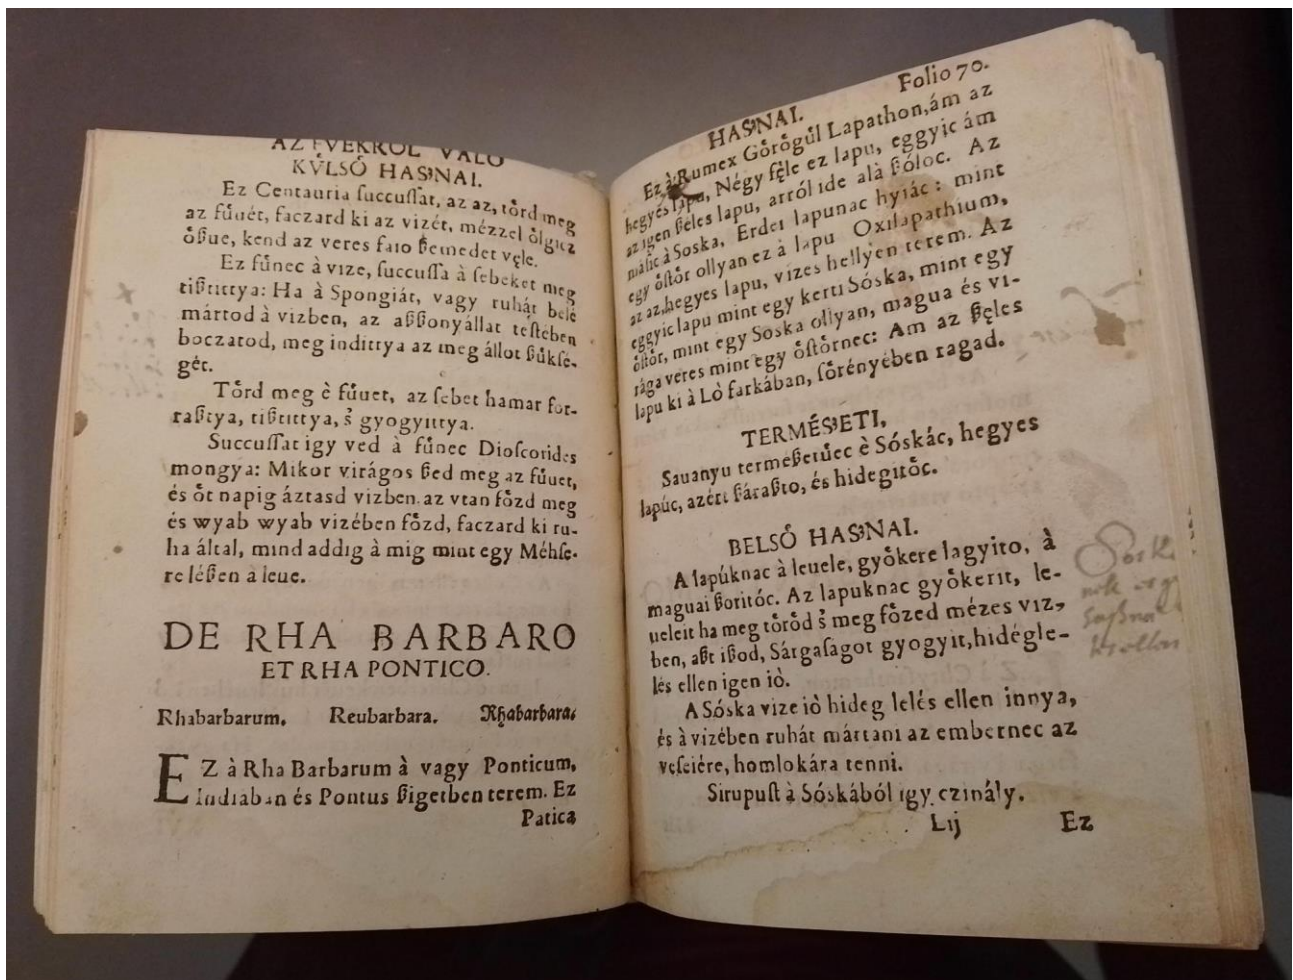 AZ FVEKROL VALO
KVͤLSOͤ HASƷNAI.
Ez Centauria ſuccuſſat, az az, toͤrd meg
az fuͤuét, faczard ki az vizét, mézzel oͤlgitz
oͤßue, kend az veres faio ßemedet vęle.
Ez fuͤnec à vize, ſuccuſſa à ſebeket meg
tißtittya: Ha à Spongiát, vagy ruhát belé
mártod à vizben, az aßßonyállat teſtében
boczatod, meg indittya az meg állot ßuͤkſé-
gét.
Toͤrd meg è fuͤuet, az ſebet hamar for-
raßtya, tißtittya, s̉ gyogyittya.
Succuſſat igy ved à fuͤnec Dioſcorides
mongya: Mikor virágos ßed meg az fuͤuet,
és oͤt napig áztasd vizben. az vtan foͤzd meg
és wyab wyab vizében foͤzd, faczard ki ru-
ha által, mind addig à mig mint egy Méhſe-
re léßen à leue.
DE RHA BARBARO
ET RHA PONTICO.
Rhabarbarum. Reubarbara. Rhabarbara.
EZ à Rha Barbarum à vagy Ponticum,
Indiaban és Pontus ßigetben terem. Ez
Patica
Folio 70.
HASƷNAI.
Ez à Rumex Goͤroͤguͤl Lapathon, ám az
hegyés lapu, Négy fęle ez lapu, eggyic ám
az igen ßéles lapu, arról ide alà ßóloc. Az
málic à Soska, Erdei lapunac hyiác: mint
egy oͤſtoͤr ollyan ez à lapu Oxilapathium,
az az, hegyes lapu, vizes hellyen terem. Az
eggyic lapu mint egy kerti Sóska, mint egy
oͤſtoͤr, mint egy Soska ollyan, magua és vi-
rága veres mint egy oͤſtoͤrnec: Am az ßęles
lapu ki à Lò farkában, ſoͤrényében ragad.
TERMÉSƷETI,
Sauanyu termeßetuͤec è Sóskác, hegyes
lapúc, azért ßáraßto, és hidegitoͤc.
BELSOͤ HASƷNAI.
A lapúknac à leuele, gyoͤkere lagyito, à
maguai ßoritóc. Az lapuknac gyoͤkerit, le-
ueleit ha meg toͤroͤd s̉ meg foͤzed mézes viz-
ben, aßt ißod, Sárgaſagot gyogyit, hidégle-
lés ellen igen iò.
A Sóska vize iò hideg lelés ellen innya,
és à vizében ruhát mártani az embernec az
veſeiére, homlokára tenni.
Sirupuſt à Sóskából igy czinály.
Lij Ez